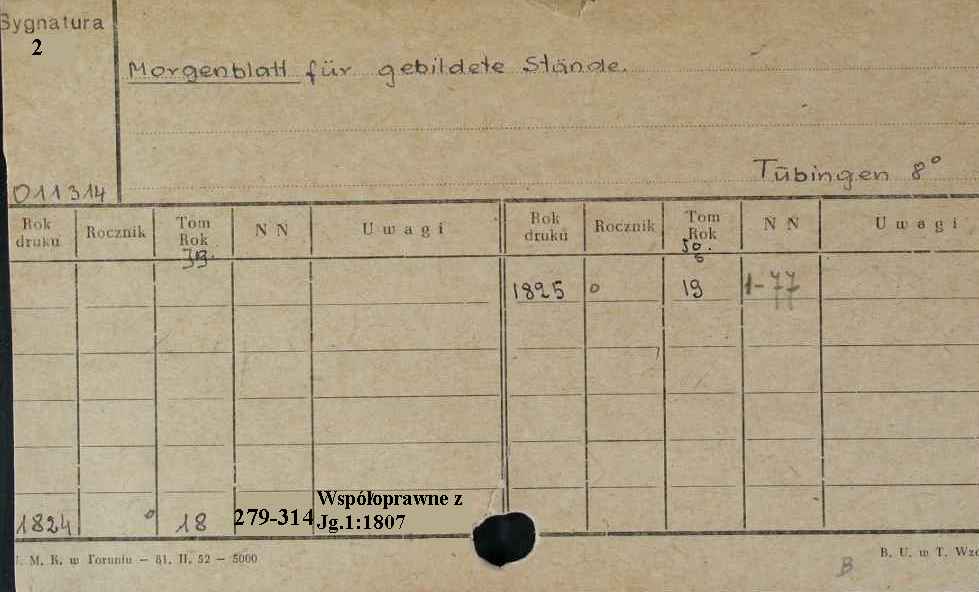 Sygnatura
2
Morgenblatt für gebildete Stände.
Tübingen 8°
011314
Rok druku Rocznik Tom Rok N N Uwagi Rok druku Rocznik Tom Rok N N Uwagi
1825 0 19 1-77
1824 0 18 279-314 Współoprawne z
Jg.1:1807
M. K. w Toruniu – 81. II. 52 – 5000
B. U. w T. Wzo
B